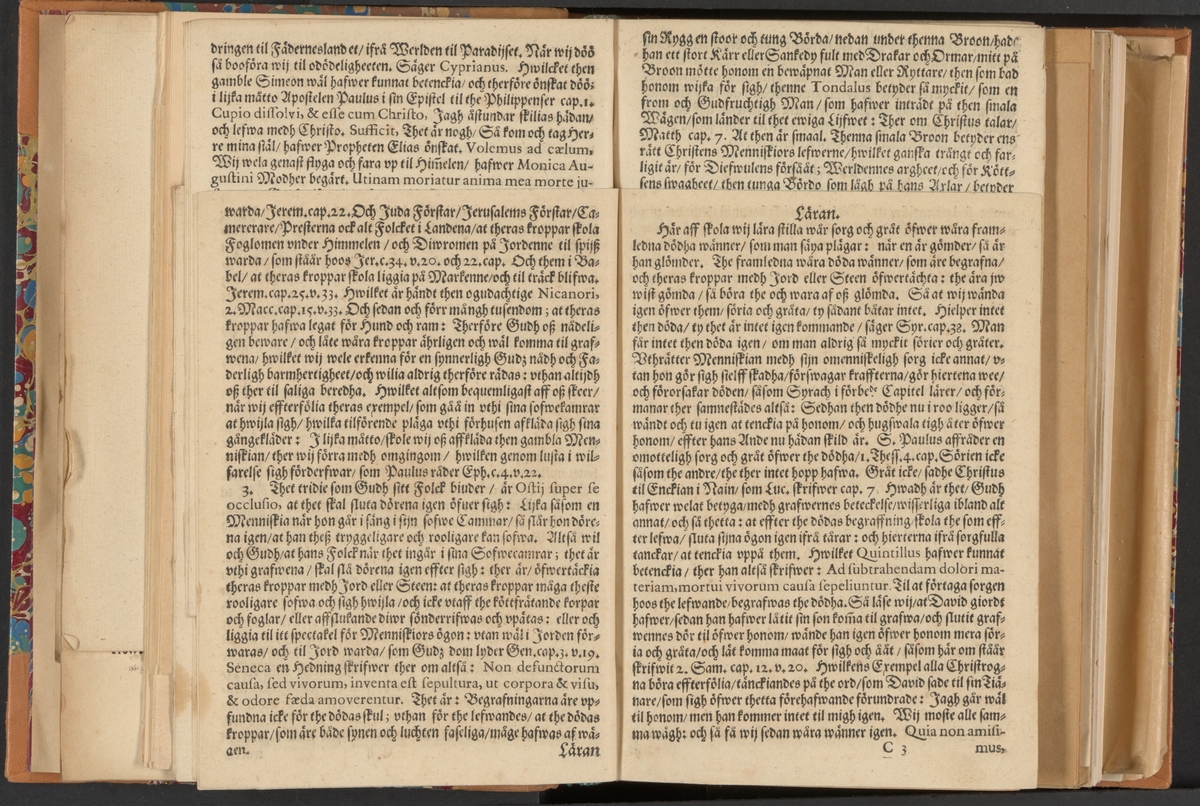 dringen til Fädernesland et/ ifrå Werlden til Paradijset. När wij döö
så booföra wij til odödeligheeten. Säger Cyprianus. Hwilcket then
gamble Simeon wäl hafwer kunnat betenckia/ och therföre önskat döö:
i lijka mätto Apostelen Paulus i sin Epistel til the Philippenser cap. 1.
Cupio dissolvi, & esse cum Christo, Jagh åstundar skilias hädan/
och lefwa medh Christo. Sufficit, Thet är nogh/ Så kom och tag Her-
re mina siäl/ hafwer Propheten Elias önskat. Volemus ad cælum,
Wij wela genast flyga och fara vp til Him̃elen/ hafwer Monica Au-
gustini Modher begärt. Utinam moriatur anima mea morte ju-
warda/ Jerem. cap. 22. Och Juda Förstar/ Jerusalems Förstar/ Ca-
mererare/ Presterna ock alt Folcket i Landena/ at theras kroppar skola
Foglomen vnder Himmelen / och Diwromen på Jordenne til spijß
warda/ som ståår hoos Jer. c. 34. v. 20. och 22. cap. Och them i Ba-
bel/ at theras kroppar skola liggia på Markenne/ och til träck blifwa.
Jerem. cap. 25. v. 33. Hwilket är händt then ogudachtige Nicanori,
2. Macc. cap. 15. v. 33. Och sedan och förr mångh tusendom; at theras
kroppar hafwa legat för Hund och ram: Therföre Gudh oß nådeli-
gen beware/ och låte wåra kroppar ährligen och wäl komma til graf-
wena/ hwilket wij wele erkenna för en synnerligh Gudz nådh och Fa-
derligh barmhertigheet/ och wilia aldrig therföre rädas: vthan altijdh
oß ther til saliga beredha. Hwilket altsom bequemligast aff oß skeer/
när wij effterfölia theras exempel/ som gåå in vthi sina sofwekamrar
at hwijla sigh/ hwilka tilförende pläga vthi förhusen afkläda sigh sina
gångekläder: I lijka mätto/ skole wij oß affkläda then gambla Men-
niskian/ ther wij förra medh omgingom/ hwilken genom lusta i wil-
farelse sigh förderfwar/ som Paulus råder Eph. c. 4. v. 22.
3. Thet tridie som Gudh sitt Folck biuder/ är Ostij super se
occlusio, at thet skal sluta dörena igen öfuer sigh: Lijka såsom en
Menniskia när hon går i säng i sijn sofwe Cammar/ så slår hon döre-
na igen/ at han theß tryggeligare och rooligare kan sofwa. Altså wil
och Gudh/ at hans Folck när thet ingår i sina Sofwecam̃rar; thet är
vthi grafwena/ skal slå dörena igen effter sigh: ther är/ öfwertäckia
theras kroppar medh Jord eller Steen: at theras kroppar måga theste
rooligare sofwa och sigh hwijla/ och icke vtaff the köttfrätande korpar
och foglar/ eller affslukande diwr sönderrifwas och vpätas: eller och
liggia til itt spectakel för Menniskiors ögon: vtan wäl i Jorden för-
waras/ och til Jord warda/ som Gudz dom lyder Gen. cap. 3. v. 19.
Seneca en Hedning skrifwer ther om altså: Non defunctorum
causa, sed vivorum, inventa est sepultura, ut corpora & visu,
& odore fæda amoverentur. Thet är: Begrafningarna äre vp-
fundna icke för the dödas skul; vthan för the lefwandes/ at the dödas
kroppar/ som äre både synen och luchten faseliga/ måge hafwas af wä-
gen. Läran
sin Rygg en stoor och tung Börda/ nedan under thenna Broon/ hade
han ett stort Kärr eller Sankedy fult med Drakar och Ormar/ mitt på
Broon mötte honom en bewäpnat Man eller Ryttare/ then som bad
honom wijka för sigh/ thenne Tondalus betyder så myckit/ som en
from och Gudfruchtigh Man/ som hafwer inträdt på then smala
Wägen/ som länder til thet ewiga Lijfwet: Ther om Christus talar/
Matth cap. 7. At then är smaal. Thenna smala Broon betyder ens
rätt Christens Menniskiors lefwerne/ hwilket ganska trångt och far-
ligit är/ för Diefwulens försåät; Werldennes argheet/ och för Kött-
sens swagheet/ then tunga Bördo som lågh på hans Axlar/ betyder
Läran.
Här aff skola wij lära stilla wår sorg och gråt öfwer wåra fram-
ledna dödha wänner/ som man säya plägar: när en är gömder/ så är
han glömder. The framledna wåra döda wänner/ som äre begrafna/
och theras kroppar medh Jord eller Steen öfwertächta: the ära jw
wist gömda/ så böra the och wara af oß glömda. Så at wij wända
igen öfwer them/ söria och gråta/ ty sådant båtar intet. Hielper intet
then döda/ ty thet är intet igen kommande/ säger Syr. cap. 38. Man
får intet then döda igen/ om man aldrig så myckit sörier och gråter.
Vthrätter Menniskian medh sijn omenniskeligh sorg icke annat/ v-
tan hon gör sigh sielff skadha/ förswagar krafferna/ gör hiertena wee/
och förorsakar döden/ såsom Syrach i förbe:de Capitel lärer/ och för-
manar ther samnestädes altså: Sedhan then dödhe nu i roo ligger/ så
wändt och tu igen at tenckia på honom/ och hugswala tigh åter öfwer
honom/ effter hans Ande nu hädan skild är. S. Paulus affråder en
omotteligh sorg och gråt öfwer the dödha/ 1. Thess. 4. cap. Sörien icke
såsom the andre/ the ther intet hopp hafwa. Gråt icke/ sadhe Christus
til Enckian i Nain/ som Luc. skrifwer cap. 7. Hwadh är thet/ Gudh
hafwer welat betyga/ medh grafwernes beteckelse/ wisserliga ibland alt
annat/ och så thetta: at effter the dödas begraffning/ skola the som eff-
ter lefwa/ sluta sijna ögon igen ifrå tårar: och hierterna ifrå sorgfulla
tanckar/ at tenckia vppå them. Hwilket Quintillus hafwer kunnat
betenckia/ ther han altså skrifwer: Ad subtrahendam dolori ma-
teriam, mortui vivorum causa sepeliuntur. Til at förtaga sorgen
hoos the lefwande/ begrafwas the dödha. Så läse wij/ at David giordt
hafwer/ sedan han hafwer lätit sin son kom̃a til grafwa/ och slutit graf-
wennes dör til öfwer honom/ wände han igen öfwer honom mera sör-
ia och gråta/ och låt komma maat för sigh och ååt/ såsom här om ståår
skrifwit 2. Sam. cap. 12. v. 20. Hwilkens Exempel alla Christrog-
na böra effterfölia/ tänckiandes på the ord/ som David sade til sin Tiä-
nare/ som sigh öfwer thetta förehafwande förundrade: Jagh går wäl
til honom/ men han kommer intet til migh igen. Wij moste alle sam-
ma wägh: och så få wij sedan wåra wänner igen. Quia non amisi-
C 3 mus,